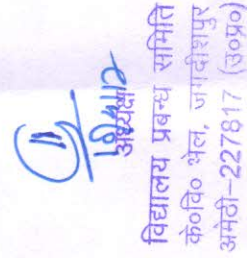 अध्यक्ष
विद्यालय प्रबन्ध समिति
के०वि० भेल, जगदीशपुर
अमेठी-227817 (उ०प्र०)